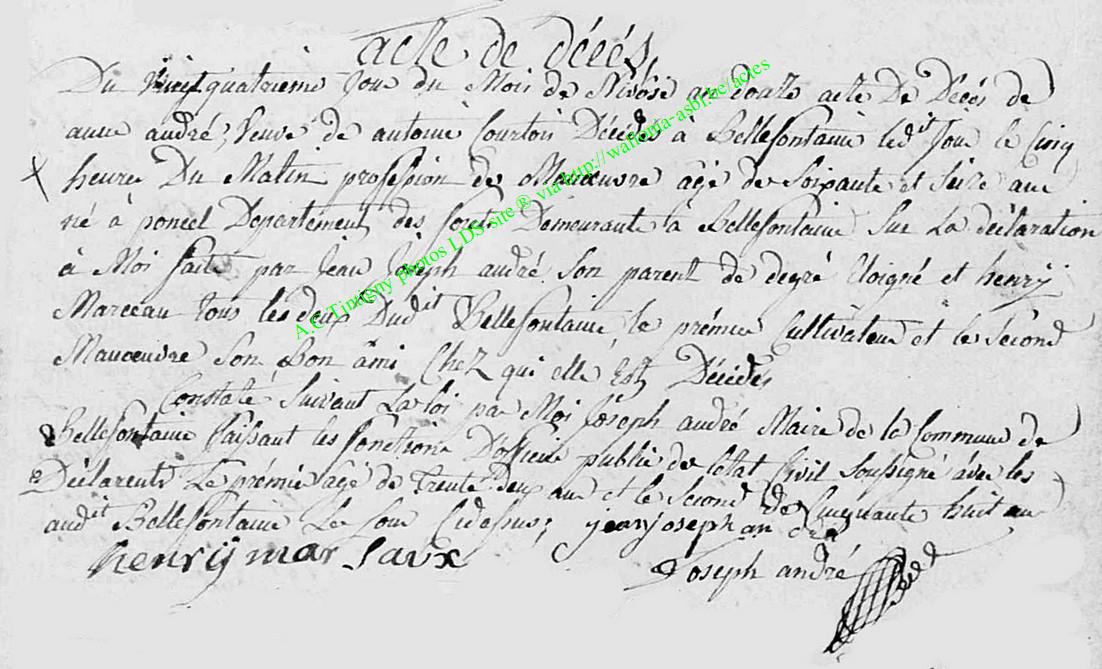 acte de décés
Du vingtquatrieme Jour du Mois de Nivôse an douze acte De Décés de
anne andré, Veuve de antoine Courtois Décédés à Bellefontaine ledit Jour le Cinq
heures Du Matin profession de Manœuvre agé de Soixante et Seize ans
né à poncel Departement des foret Demeurante à Bellefontaine Sur La déclaration
à Moi faite par Jean Joseph andré Son parent de degré Eloigné et henrij
Marceau tous les deux Dudit Bellefontaine le premier Cultivateur et le Second
Manœuvre Son Bon ami Chez qui elle Est Décédés
Constaté Suivant La loi par Moi Joseph andré Maire de la Commune de
Bellefontaine faisant les fonctions D'officier public de l'état Civil Soussigné avec les
Déclarents Le premier agé de Trente deux ans et le Second de Cinquante huit ans
audit Bellefontaine Le Jour Cidessus; jean joseph andré
henrij marsaux Joseph andré
A.C Tintigny photos LDS site ® via http://wallonia-asbl.be/actes